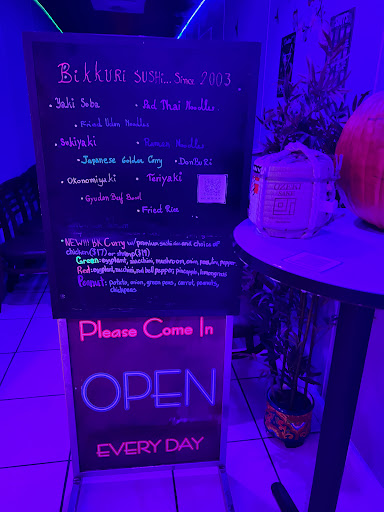 Bikkuri Sushi... Since 2003
• Yaki Soba • Pad Thai Noodles
• Fried Udon Noodles
• Sukiyaki • Ramen Noodles
• Japanese Golden Curry • DonBuRi
• Okonomiyaki • Teriyaki
• Gyudon Beef Bowl
• Fried Rice
• NEW!!! BK Curry w/ premium sushi rice and choice of
chicken ($17) or shrimp ($19)
Green: eggplant, zucchini, mushroom, onion, pepper
Red: eggplant, zucchini, red bell pepper, pineapple, lemongrass
Peanut: potato, onion, green peas, carrot, peanuts,
chickpeas
Please Come In
OPEN
EVERY DAY